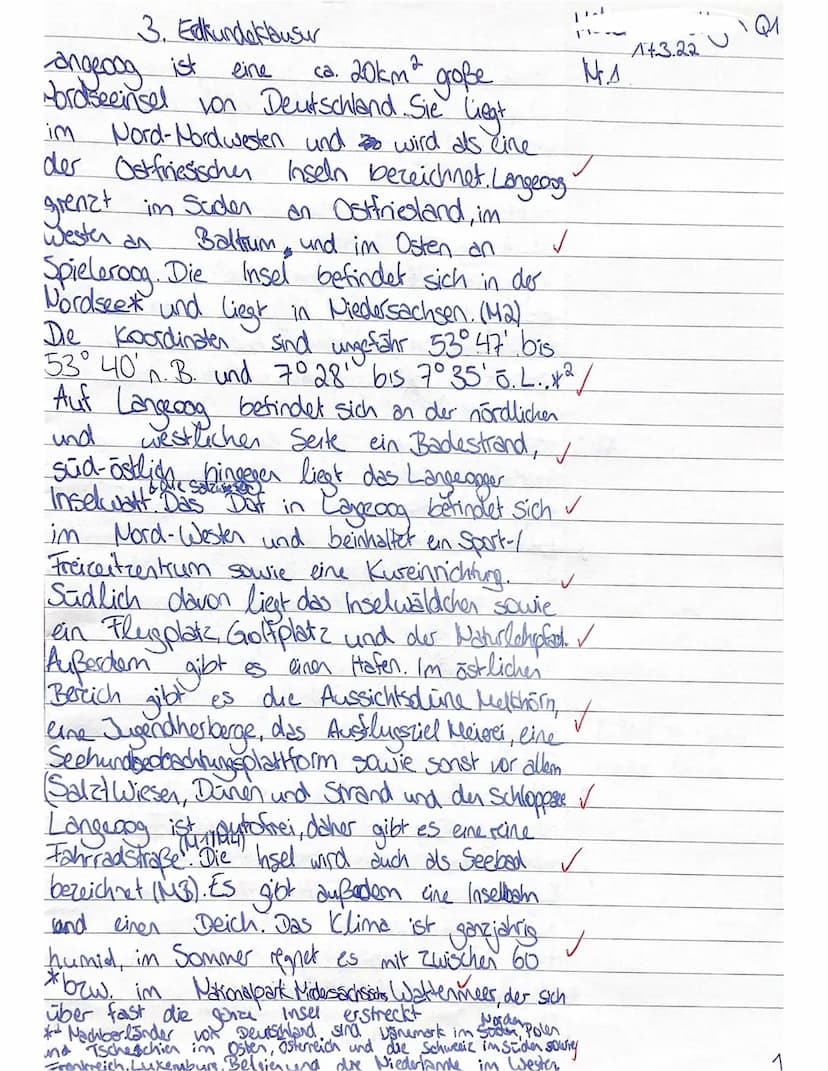 3. Erdkundeklausur
Q1
17.3.22
Nr.1
Langeoog ist eine ca. 20km² große
Nordseeinsel von Deutschland. Sie liegt
im Nord-Nordwesten und wird als eine
der Ostfriesischen Inseln bezeichnet. Langeoog
grenzt im Süden an Ostfriesland, im
Westen an Baltrum, und im Osten an
Spiekeroog. Die Insel befindet sich in der
Nordsee* und liegt in Niedersachsen. (M2)
Die Koordinaten sind ungefähr 53° 47' bis
53° 40' n. B. und 7° 28' bis 7° 35' ö. L.,*²
Auf Langeoog befindet sich an der nördlichen
und westlichen Seite ein Badestrand,
süd-östlich hingegen liegt das Langeooger
& die Salzwiesen
Inselwatt. Das Dorf in Langeoog befindet sich
im Nord-Westen und beinhaltet ein Sport-/
Freizeitzentrum sowie eine Kureinrichtung.
Südlich davon liegt das Inselwäldchen sowie
ein Flugplatz, Golfplatz und der Naturlehrpfad.
Außerdem gibt es einen Hafen. Im östlichen
Bereich gibt es die Aussichtsdüne Melkhörn,
eine Jugendherberge, das Ausflugsziel Meierei, eine
Seehundbeobachtungsplattform sowie sonst vor allem
(Salz)Wiesen, Dünen und Strand und den Schloppsee
Langeoog ist autofrei, daher gibt es eine reine
(M1/M4)
Fahrradstraße. Die Insel wird auch als Seebad
bezeichnet (M3). Es gibt außerdem eine Inselbahn
und einen Deich. Das Klima ist ganzjährig
humid, im Sommer regnet es mit zwischen 60
*bzw. im Nationalpark Niedersächsisches Wattenmeer, der sich
über fast die ganze Insel erstreckt
*² Nachbarländer von Deutschland sind Dänemark im Norden, Polen
und Tschechien im Osten, Österreich und die Schweiz im Süden sowie
Frankreich, Luxemburg, Belgien und die Niederlande im Westen
1